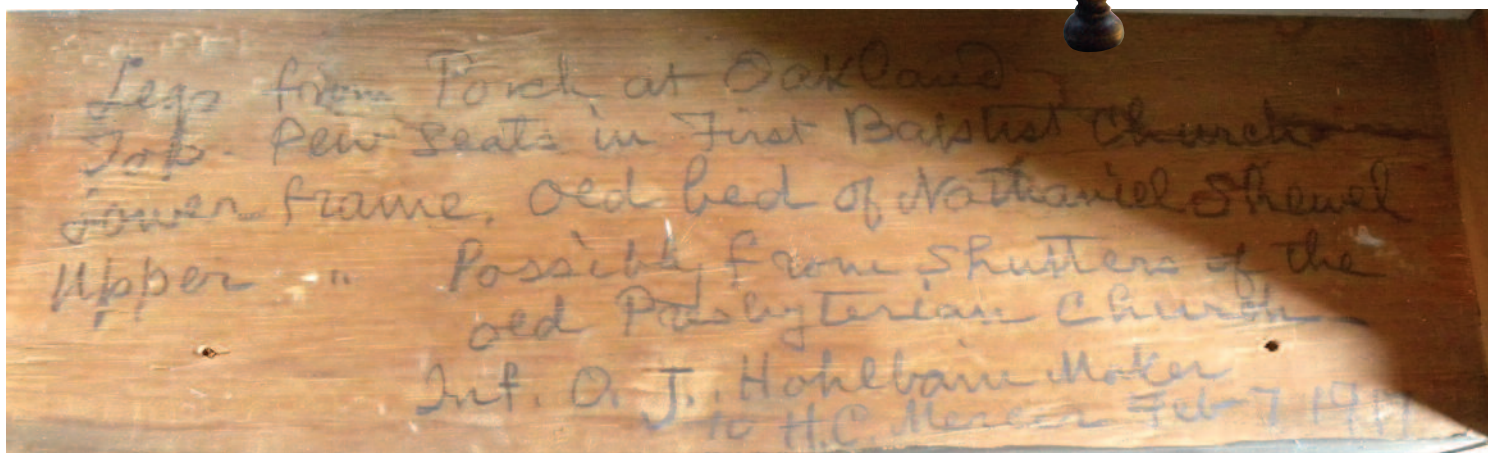 Legs from Porch at Oakland
Top. Pew Seats in First Baptist Church
Lower frame, old bed of Nathaniel Shewel
Upper " Possibly from Shutters of the
old Presbyterian Church
Inf. O. J. Hohlbain Maker
to H.C. Mercer Feb 7 1917